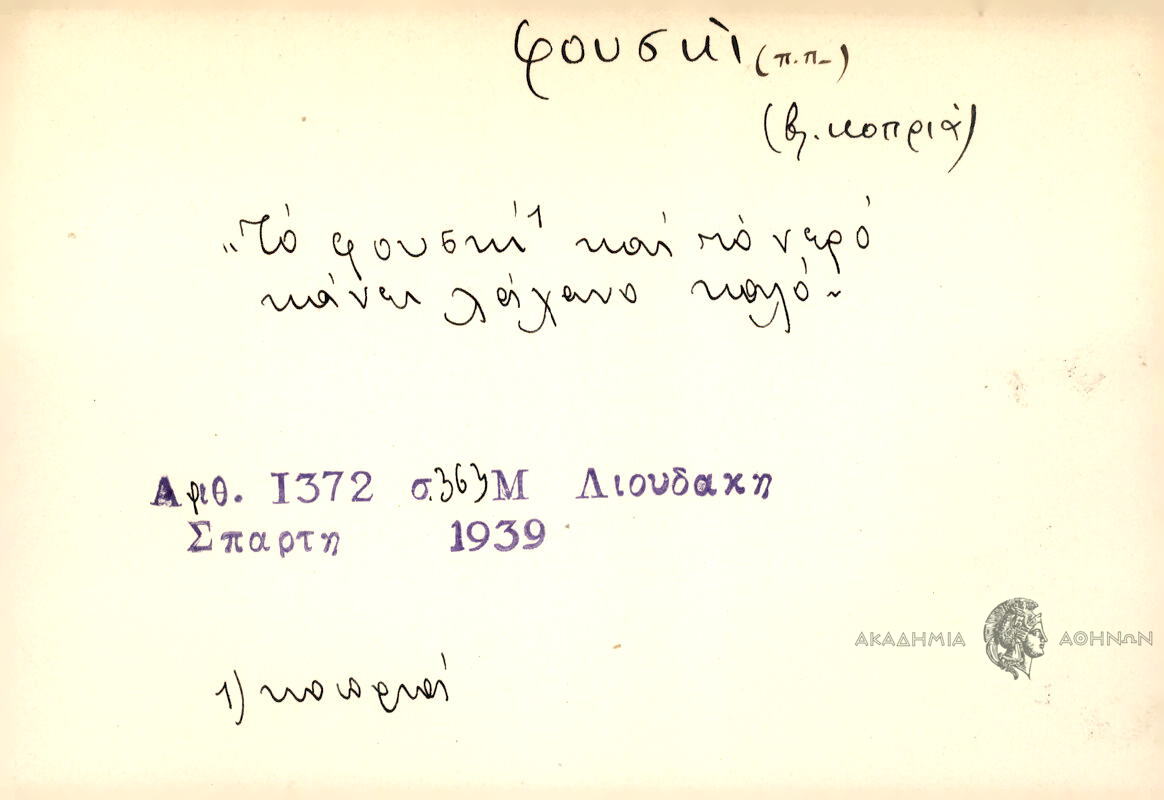 φουσκὶ (π.π.)
(βλ. κοπριὰ)
„Τό φουσκί¹ καί τό νερό
κάνει λάχανο καλό„
Αριθ. 1372 σ. 363 Μ Λιουδακη
Σπαρτη 1939
ΑΚΑΔΗΜΙΑ ΑΘΗΝΩΝ
1) κοπριά